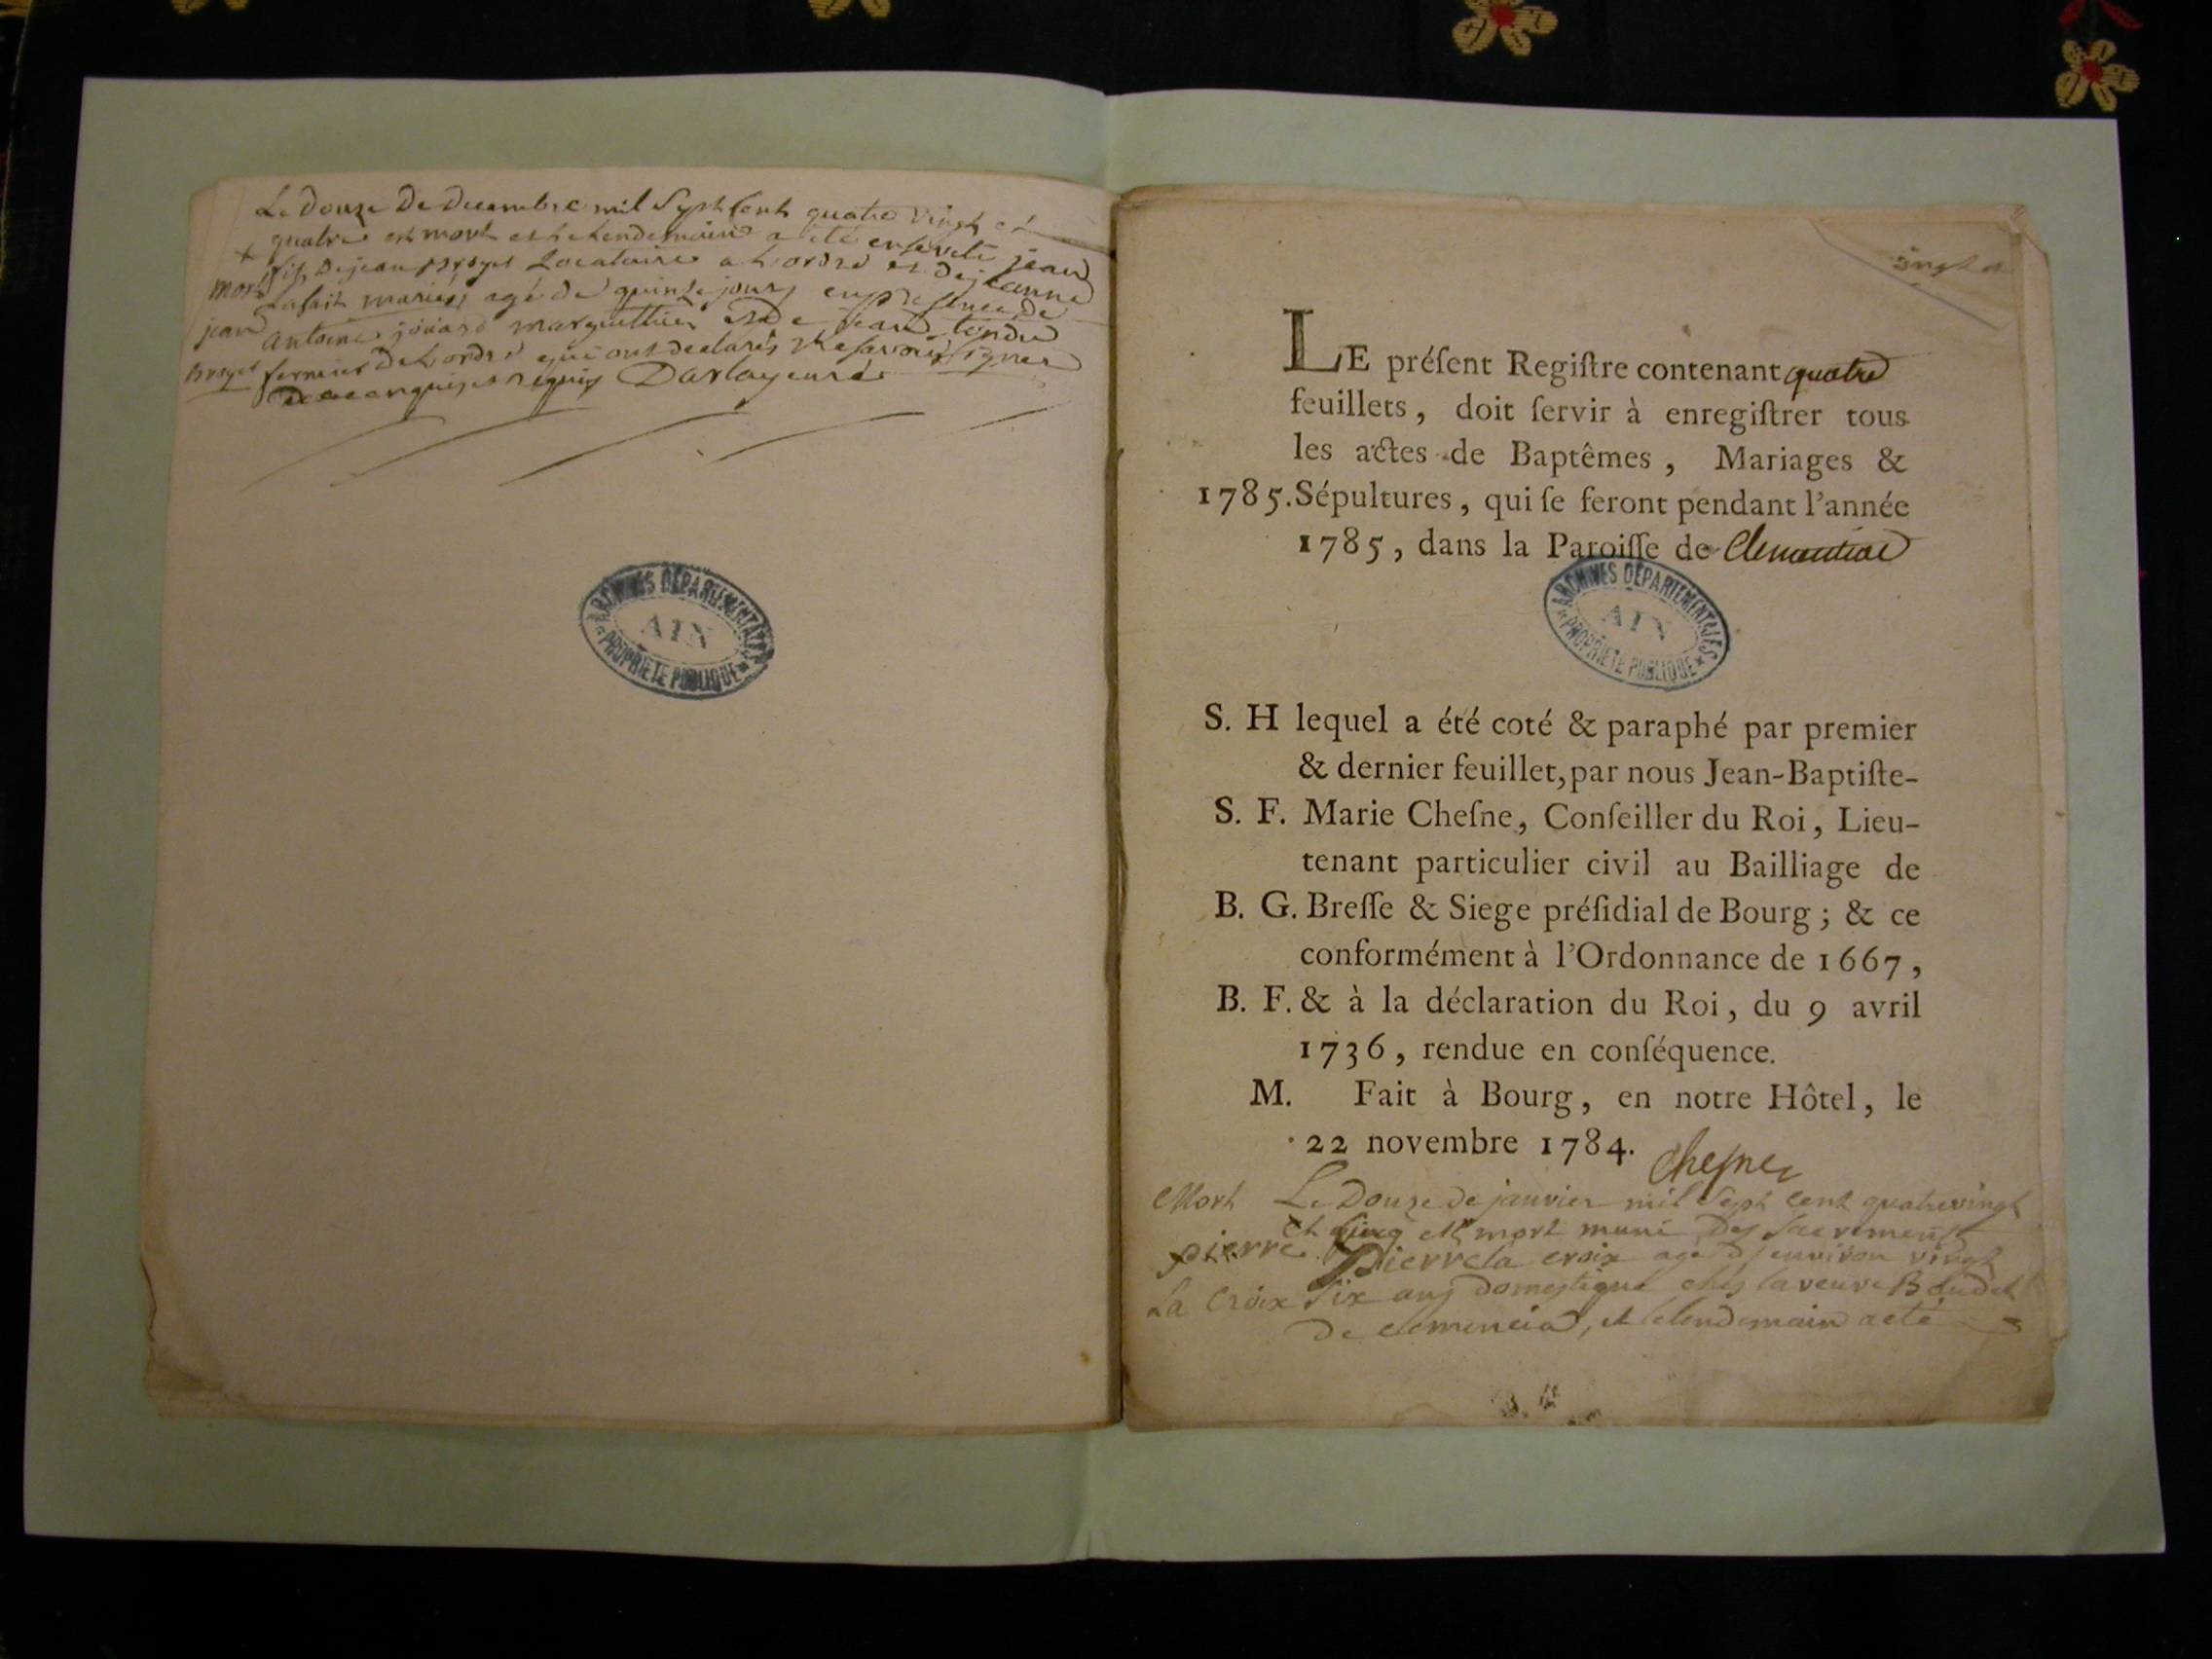 Le douze De Decembre mil Sept Cent quatre vingt et
quatre est mort et le lendemain a été enseveli jean
fils De jean Broyet Locataire a L'ordre et De jeanne
Lafait mariés, agé de quinze jours en presence de
Antoine joüard marguillier et De jean tondu
fermier De L'ordre qui ont declarés ne savoir signer
De ce enquis et requis Darlay curé
+
mort
jean
Broyet
ARCHIVES DÉPARTEMENTALES
AIN
PROPRIÉTÉ PUBLIQUE
vingt et
LE préſent Regiſtre contenant quatre
feuillets, doit ſervir à enregiſtrer tous
les actes de Baptêmes, Mariages &
1785. Sépultures, qui ſe feront pendant l'année
1785, dans la Paroiſſe de Clemenciat
ARCHIVES DÉPARTEMENTALES
AIN
PROPRIÉTÉ PUBLIQUE
S. H lequel a été coté & paraphé par premier
& dernier feuillet, par nous Jean-Baptiſte-
S. F. Marie Cheſne, Conſeiller du Roi, Lieu-
tenant particulier civil au Bailliage de
B. G. Breſſe & Siege préſidial de Bourg; & ce
conformément à l'Ordonnance de 1667,
B. F. & à la déclaration du Roi, du 9 avril
1736, rendue en conſéquence.
M. Fait à Bourg, en notre Hôtel, le
22 novembre 1784. Chesne
Mort Le Douze de janvier mil Sept Cent quatrevingt
et Cinq est mort muni Des Sacrements
pierre Pierre la croix agé d'environ vingt
La Croix Six ans domestique chez la veuve Boudet
De clemencia, et le lendemain a eté